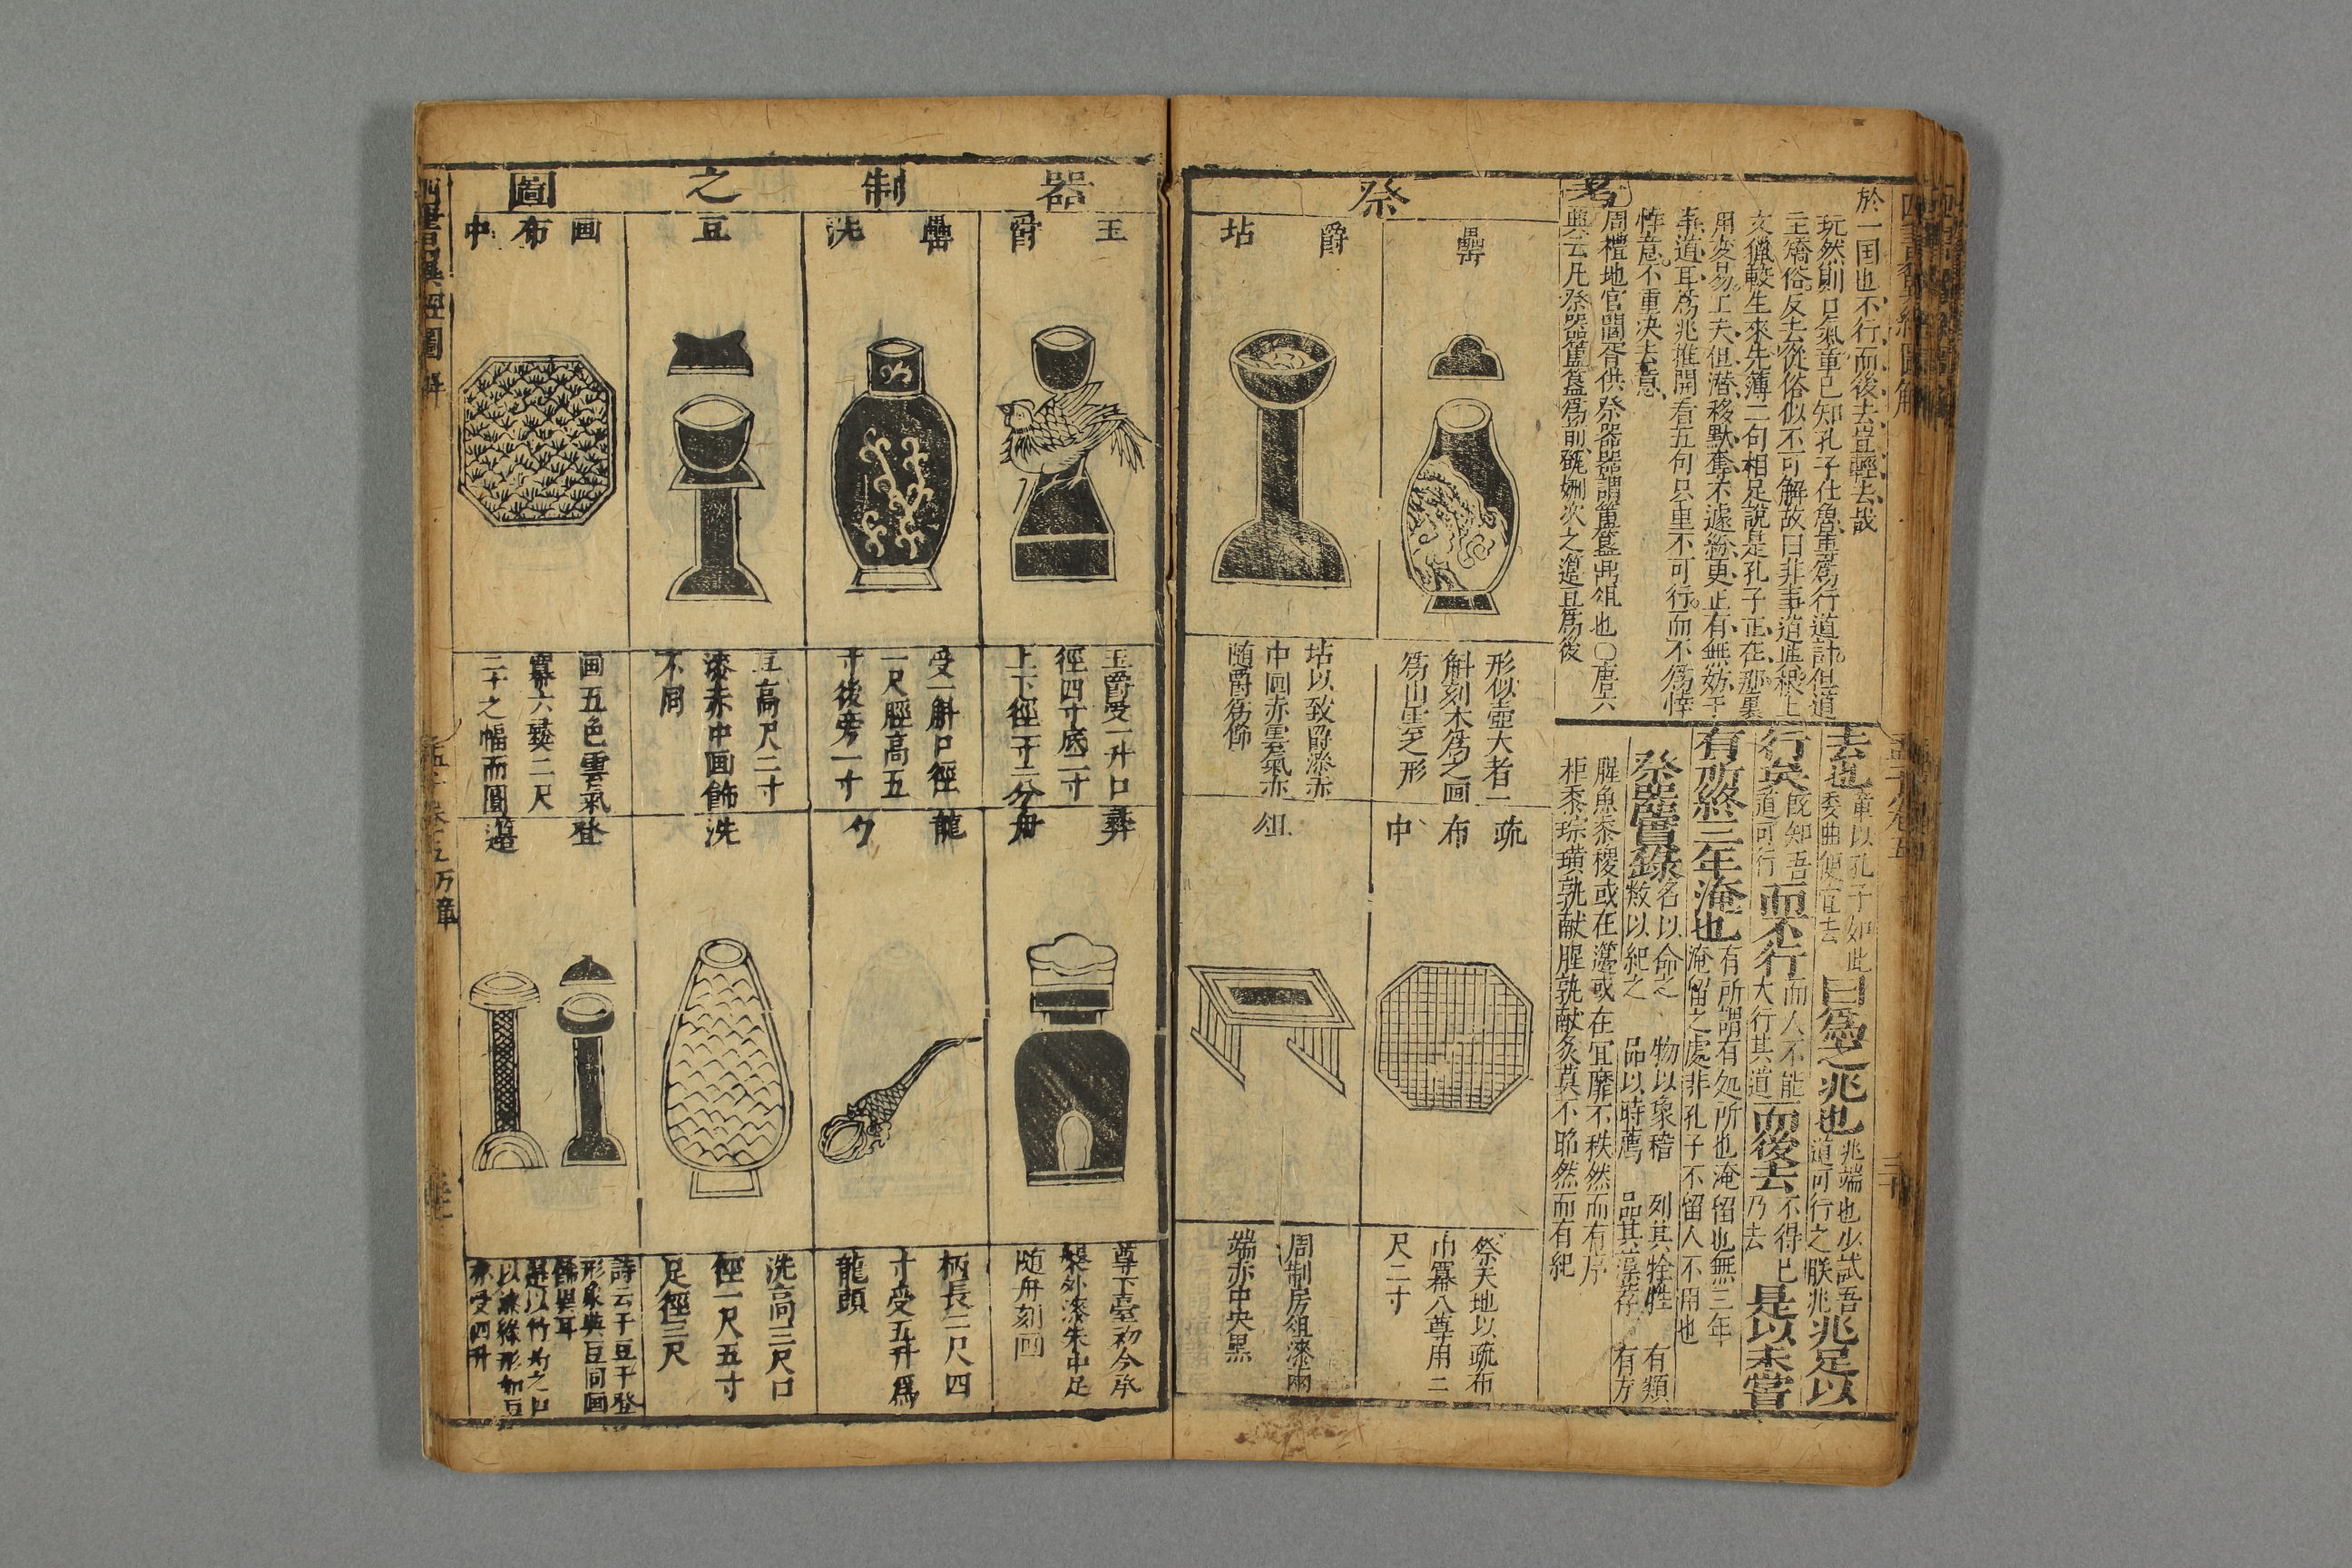 於一国也不行而後去豈輕去哉
玩然則口氣章已知孔子仕魯重為行道計但道
主矯俗反去從俗似不可解故曰非事道與根上
文獵較生來先簿二句相足說是孔子正在那裏
用变易工夫但潛移默奪不遽紛更正有無妨于
事道耳為兆推開看五句只重不可行而不為悻
悻意不重决去意
考
周禮地官閭胥供祭器器謂簠簋鼎俎也○唐六
典云凡祭器簠簋為前㽅鉶次之籩豆為後
去也
章以孔子如此
委曲便宜去
曰為之兆也
兆端也少試吾
道可行之朕兆
兆足以
行矣
既知吾
道可行
而不行
而人不能
大行其道
而後去
不得已
乃去
是以未嘗
有所終三年淹也
有所謂有処所也淹留也無三年
淹留之處非孔子不留人不用也
祭器實錄
名以命之
數以紀之
物以象稽
品以時薦
列其牲牷
品其藻荐
有類
有方
腥魚黍稷或在籩或在宜靡不秩然而有序
秬黍琮璜孰献腥孰献炙莫不昭然而有紀
祭
罍
形似壺大者一
斛刻木為之画
為山雲之形
爵坫
坫以致爵漆赤
中画赤雲氣亦
随爵為飾
疏布巾
祭天地以疏布
巾冪八尊用二
尺二寸
俎
周制房俎漆兩
端赤中央黑
器制之圖
玉爵
玉爵受一升口
徑四寸底二寸
上下徑二寸二分
罍洗
受一斛口徑
一尺脛高五
寸後旁一寸
豆
豆高尺二寸
漆赤中画飾
不同
画布巾
画五色雲氣
冪六彝二尺
二寸之幅而圓
彝舟
尊下臺初今承
槃外漆朱中足
随舟刻画
龍勺
柄長二尺四
寸受五升為
龍頭
洗
洗高三尺口
徑一尺五寸
足徑三尺
登籩
詩云于豆于登
形象與豆同画
飾異耳
籩以竹為之口
以漆緣形如豆
亦受四升
四書
經圖解
卷之五万章